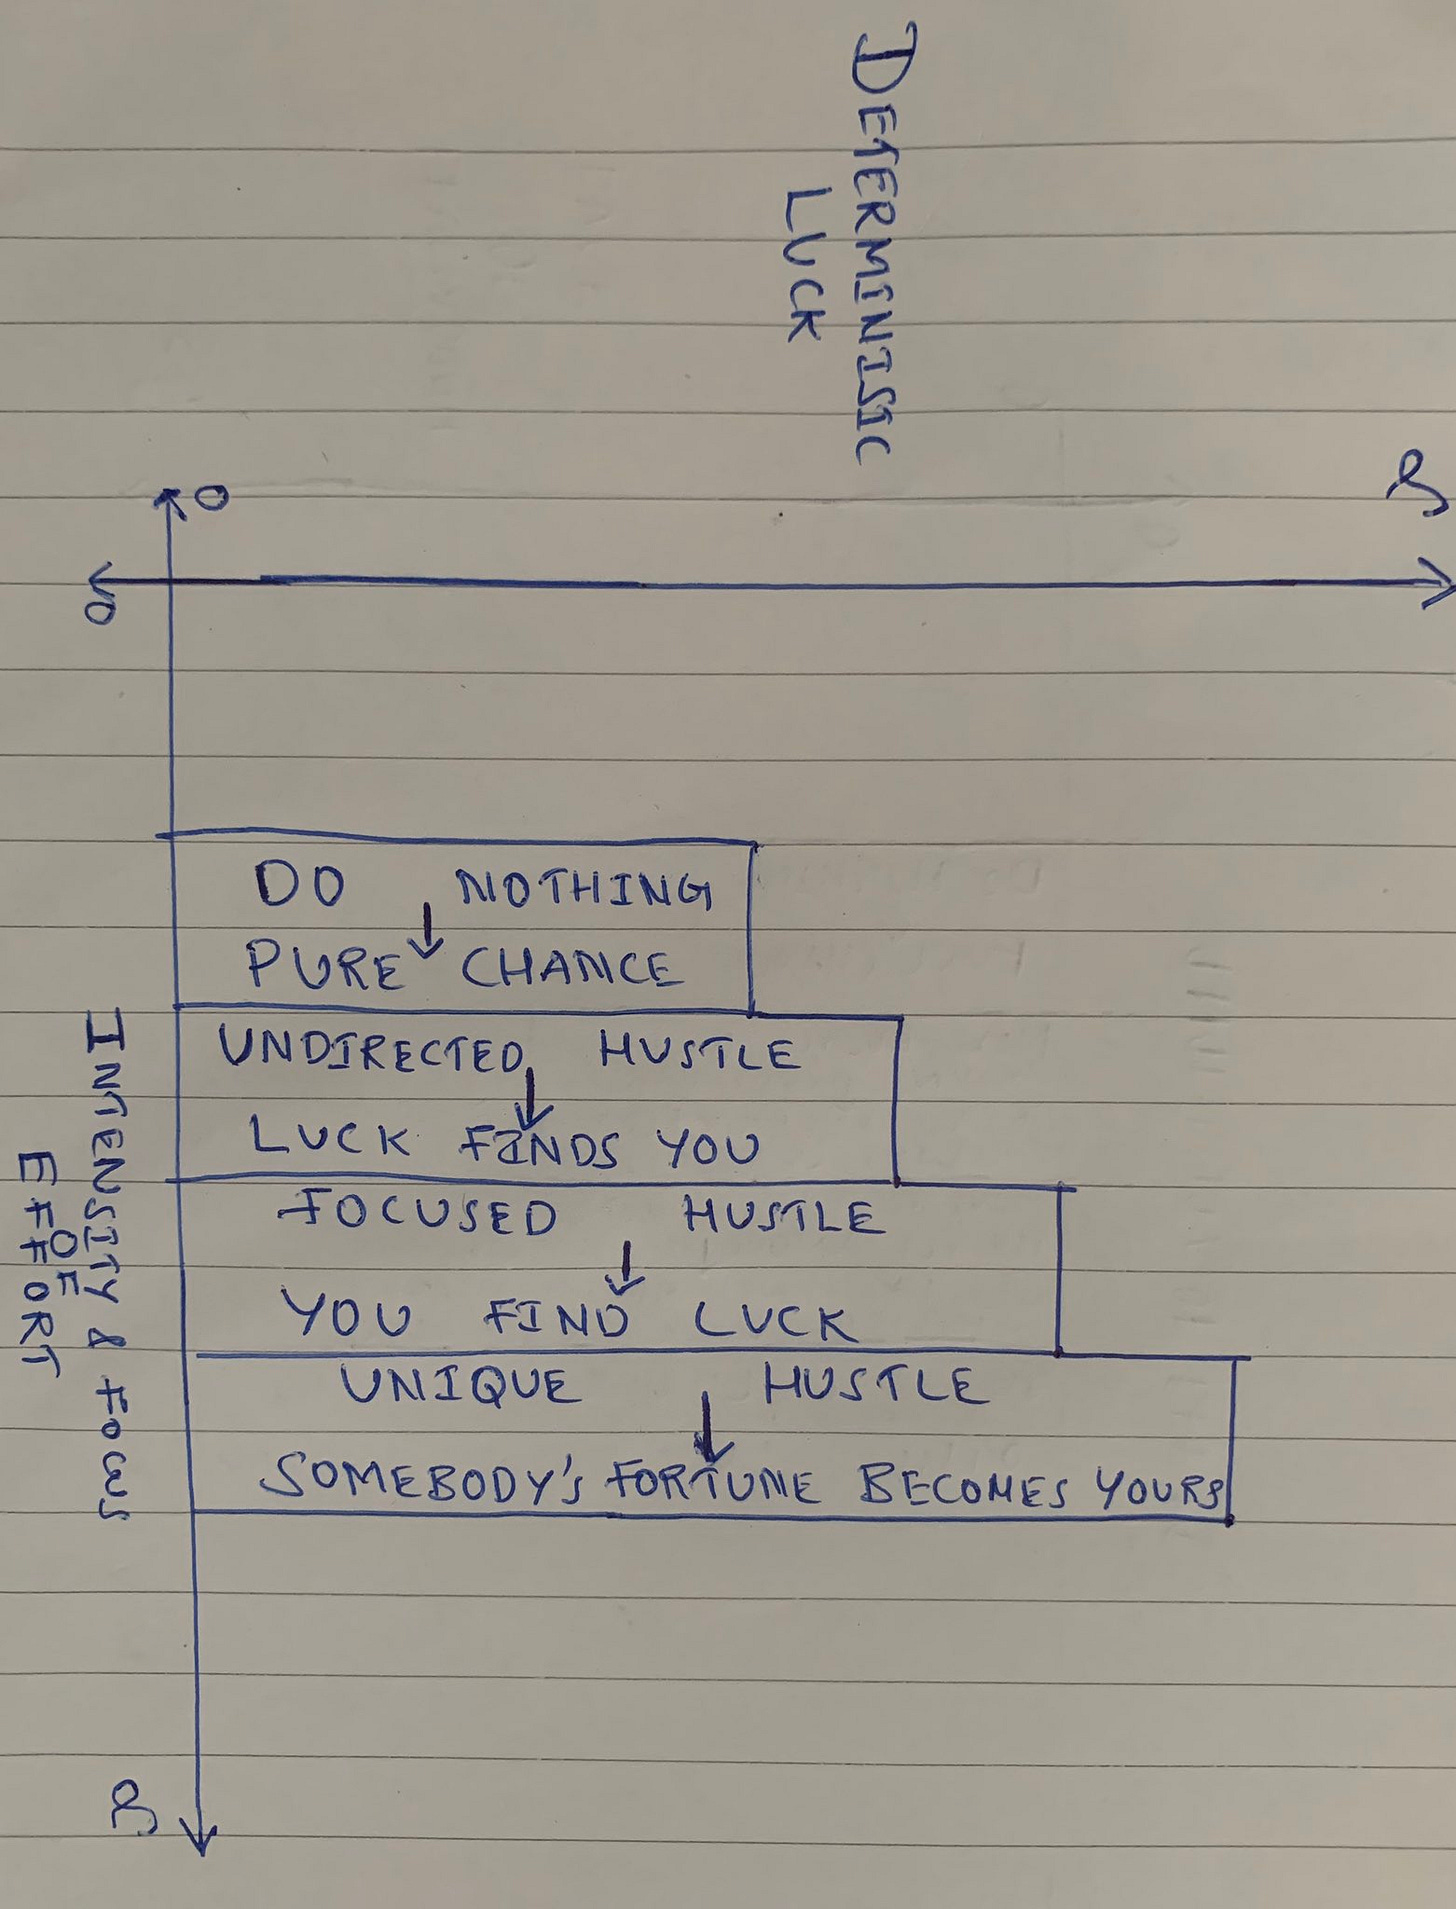 DETERMINISTIC
LUCK
0
0
DO NOTHING
↓
PURE CHANCE
UNDIRECTED HUSTLE
↓
LUCK FINDS YOU
FOCUSED HUSTLE
↓
YOU FIND LUCK
UNIQUE HUSTLE
↓
SOMEBODY'S FORTUNE BECOMES YOURS
INTENSITY & FOCUS
OF
EFFORT